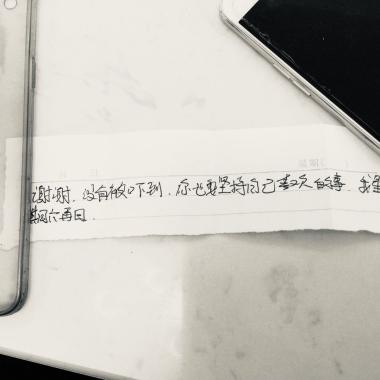 日 星期( )
谢谢,没有被吓到,你也要坚持自己喜欢的事,我星
期六再回.